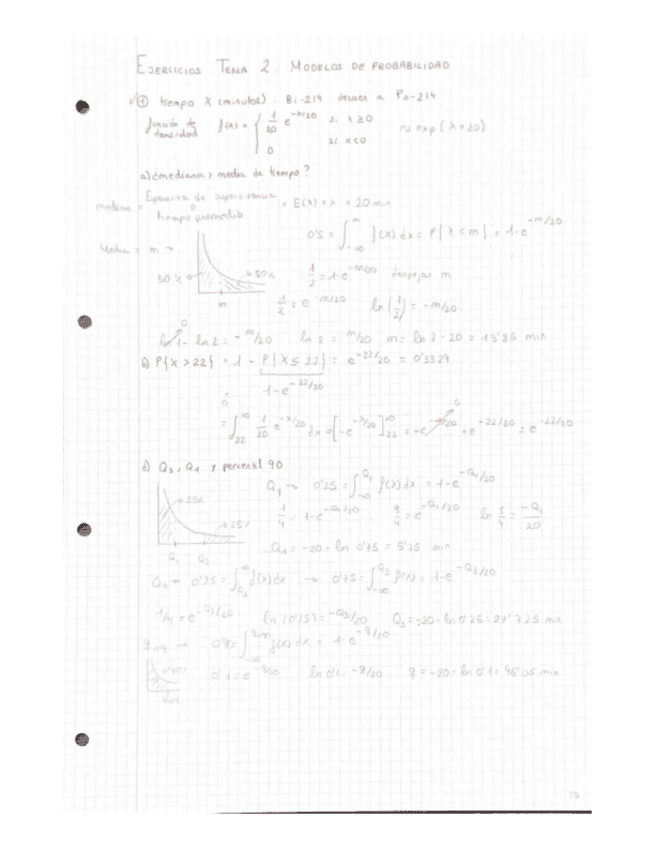 EJERCICIOS TEMA 2: MODELOS DE PROBABILIDAD
① tiempo X (minutos). Bi-214 decaer a Po-214
función de densidad f(x) = { 1/20 e^(-x/20) si x≥0
0 si x<0
exp (λ=20)
a) ¿mediana y media de tiempo?
Esperanza de
tiempo promedio = E(X) = λ = 20 min
m →
0'5 = ∫_{-∞}^{m} f(x) dx = P{X<m} = 1-e^(-m/20)
50% 50%
m
1/2 = 1-e^(-m/20) despejar m
1/2 = e^(-m/20) ln(1/2) = -m/20
0
ln 1 - ln 2 = -m/20 ln 2 = m/20 m = ln 2 · 20 = 13'86 min
b) P{X>22} = 1 - P{X≤22} = e^(-22/20) = 0'3329
1-e^(-22/20)
ó
= ∫_{22}^{∞} 1/20 e^(-x/20) dx = [-e^(-x/20)]_{22} = +e^(-22/20) = e^(-22/20)
Q3, Q1 y percentil 90
Q1 → 0'25 = ∫_{-∞}^{Q1} f(x) dx = 1-e^(-Q1/20)
25% 25%
Q1 Q3
1/4 = 1-e^(-Q1/20) 3/4 = e^(-Q1/20) ln 3/4 = -Q1/20
Q1 = -20 · ln 0'75 = 5'75 min
Q3 → 0'25 = ∫_{Q3}^{∞} f(x) dx → 0'75 = ∫_{-∞}^{Q3} f(x) = 1-e^(-Q3/20)
1/4 = e^(-Q3/20) ln(0'25) = -Q3/20 Q3 = -20 · ln 0'25 = 27'725 min
0'9 = ∫_{-∞} f(x) dx = 1-e^(-q/20)
0'1 = e^(-q/20) ln 0'1 = -q/20 q = -20 · ln 0'1 = 46'05 min